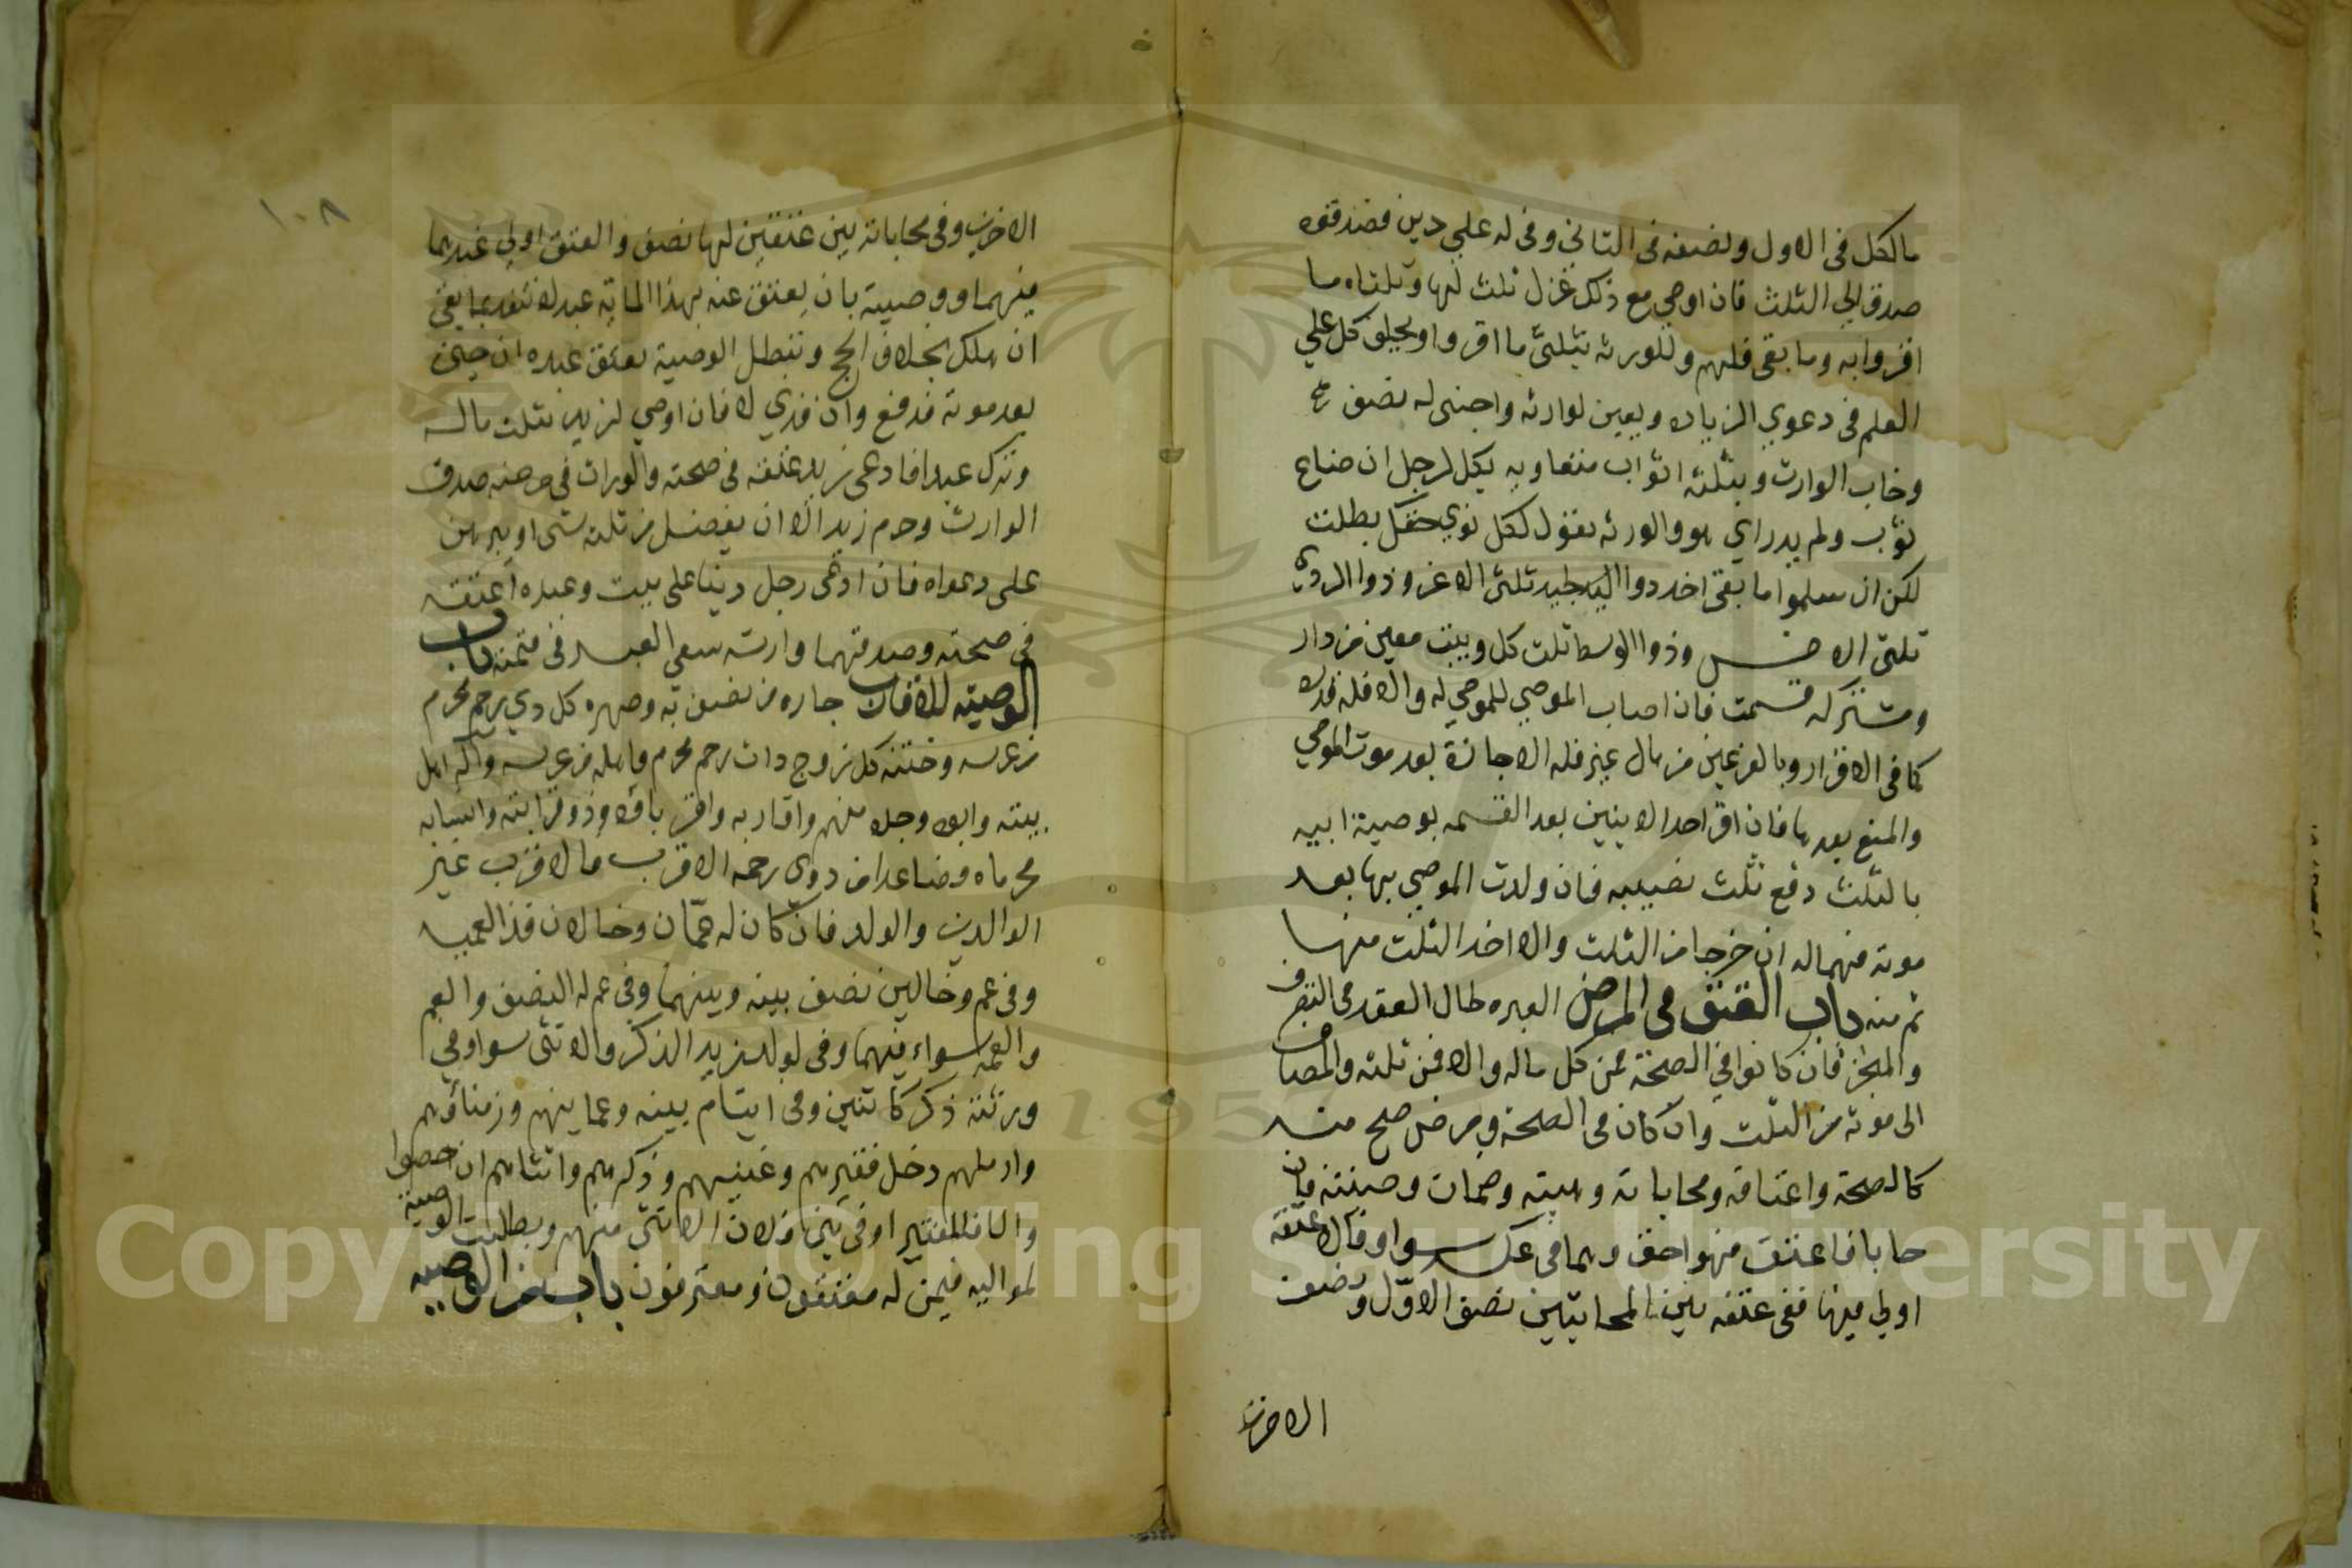 مالكل فى الاول ونصفه فى الثانى وفى له علي دين فصدقوه
صدق الي الثلث فان اوصي مع ذلك عزل ثلث لها وثلثاه ما
اقروا به وما بقى فلهم وللورثه بثلثى ما اقروا ويحلف كل علي
العلم فى دعوي الزياده وبعين لوارثه واجنبى له نصف
وخاب الوارث وبثلثه اثواب متفاوته بكل لرجل ان ضاع
ثوب ولم يدر اي هو والورثه تقول لكل توي حقك بطلت
لكن ان سلموا ما بقى اخد دوا الجيد ثلثى الاعز وذوا الردي
ثلثى الاخس وذوا الوسط ثلث كل وببيت معين من دار
مشتركه قسمت فان اصاب الموصي للموصي له والا فله قدره
كما فى الاقرار وبالف عين من مال غيره فله الاجازة بعد موت الموصي
والمنع بعدها فان اقر احد الابنين بعد القسمه بوصية ابيه
بالثلث دفع ثلث نصيبه فان ولدت الموصي بها بعد
موته فهما له ان خرجا من الثلث والا اخد الثلث منها
ثم منه باب العتق فى المرض العبره بحال العقد فى التصرف
والمنجز فان كانوا فى الصحة فمن كل ماله والا فمن ثلثه والمضاف
الى موته من الثلث وان كان فى الصحة ومرض صح منه
كالصحة واعتاقه ومحاباته وهبته وضمانه وصيته فان
حابا فاعتق فهو احق وهما فى عكسه سوا وقالا عتقه
اولي فيها ففى عتقه بين المحابتين نصف الاول ونصف
الاخرين
١٠٨
الاخرين وفى محاباته بين عتقين لها نصف والعتق اولي عندهما
فيهما ووصيته بان يعتق عنه بهذا الماية عبد لا تنفد بما بقى
ان هلك بخلاف الحج وتبطل الوصية بعتق عبده ان جنى
بعد موته فدفع وان فدي لا فان اوصي لزيد بثلث ماله
وترك عبدا فادعى زيد عتقه فى صحته والوارث فى مرضه صدق
الوارث وحرم زيد الا ان يفضل من ثلثه شى او يبرهن
على دعواه فان ادعى رجل دينا على ميت وعبده اعتقه
فى صحته وصدقهما وارثه سعى العبد فى قيمته باب
الوصية للاقارب جاره من لصق به وصهره كل دي رحم محرم
من عرسه وختنه كل زوج دات رحم محرم واهله عرسه وآله اهل
بيته وابوه وجده منهم واقاربه واقرباؤه وذو قرابته وانسابه
محرماه فصاعدا من دوى رحمه الاقرب فالاقرب غير
الوالدين والولد فان كان له عمان وخالان فذا لعميه
وفى عم وخالين نصف بينه وبينهما وفى عم له النصف والعم
والعمة سواء فيهما وفى لولد زيد الذكر والانثى سوا وفي
ورثته ذكر كانثيين وفى ايتام بينه وعميانهم وزمناؤهم
واراملهم دخل فقيرهم وغنيهم وذكرهم وانثاهم ان احصوا
والا فللفقير او فى بنى فلان الانثى منهم وبطلت الوصية
لمواليه فيمن له معتقون ومعتقون باب الوصيه